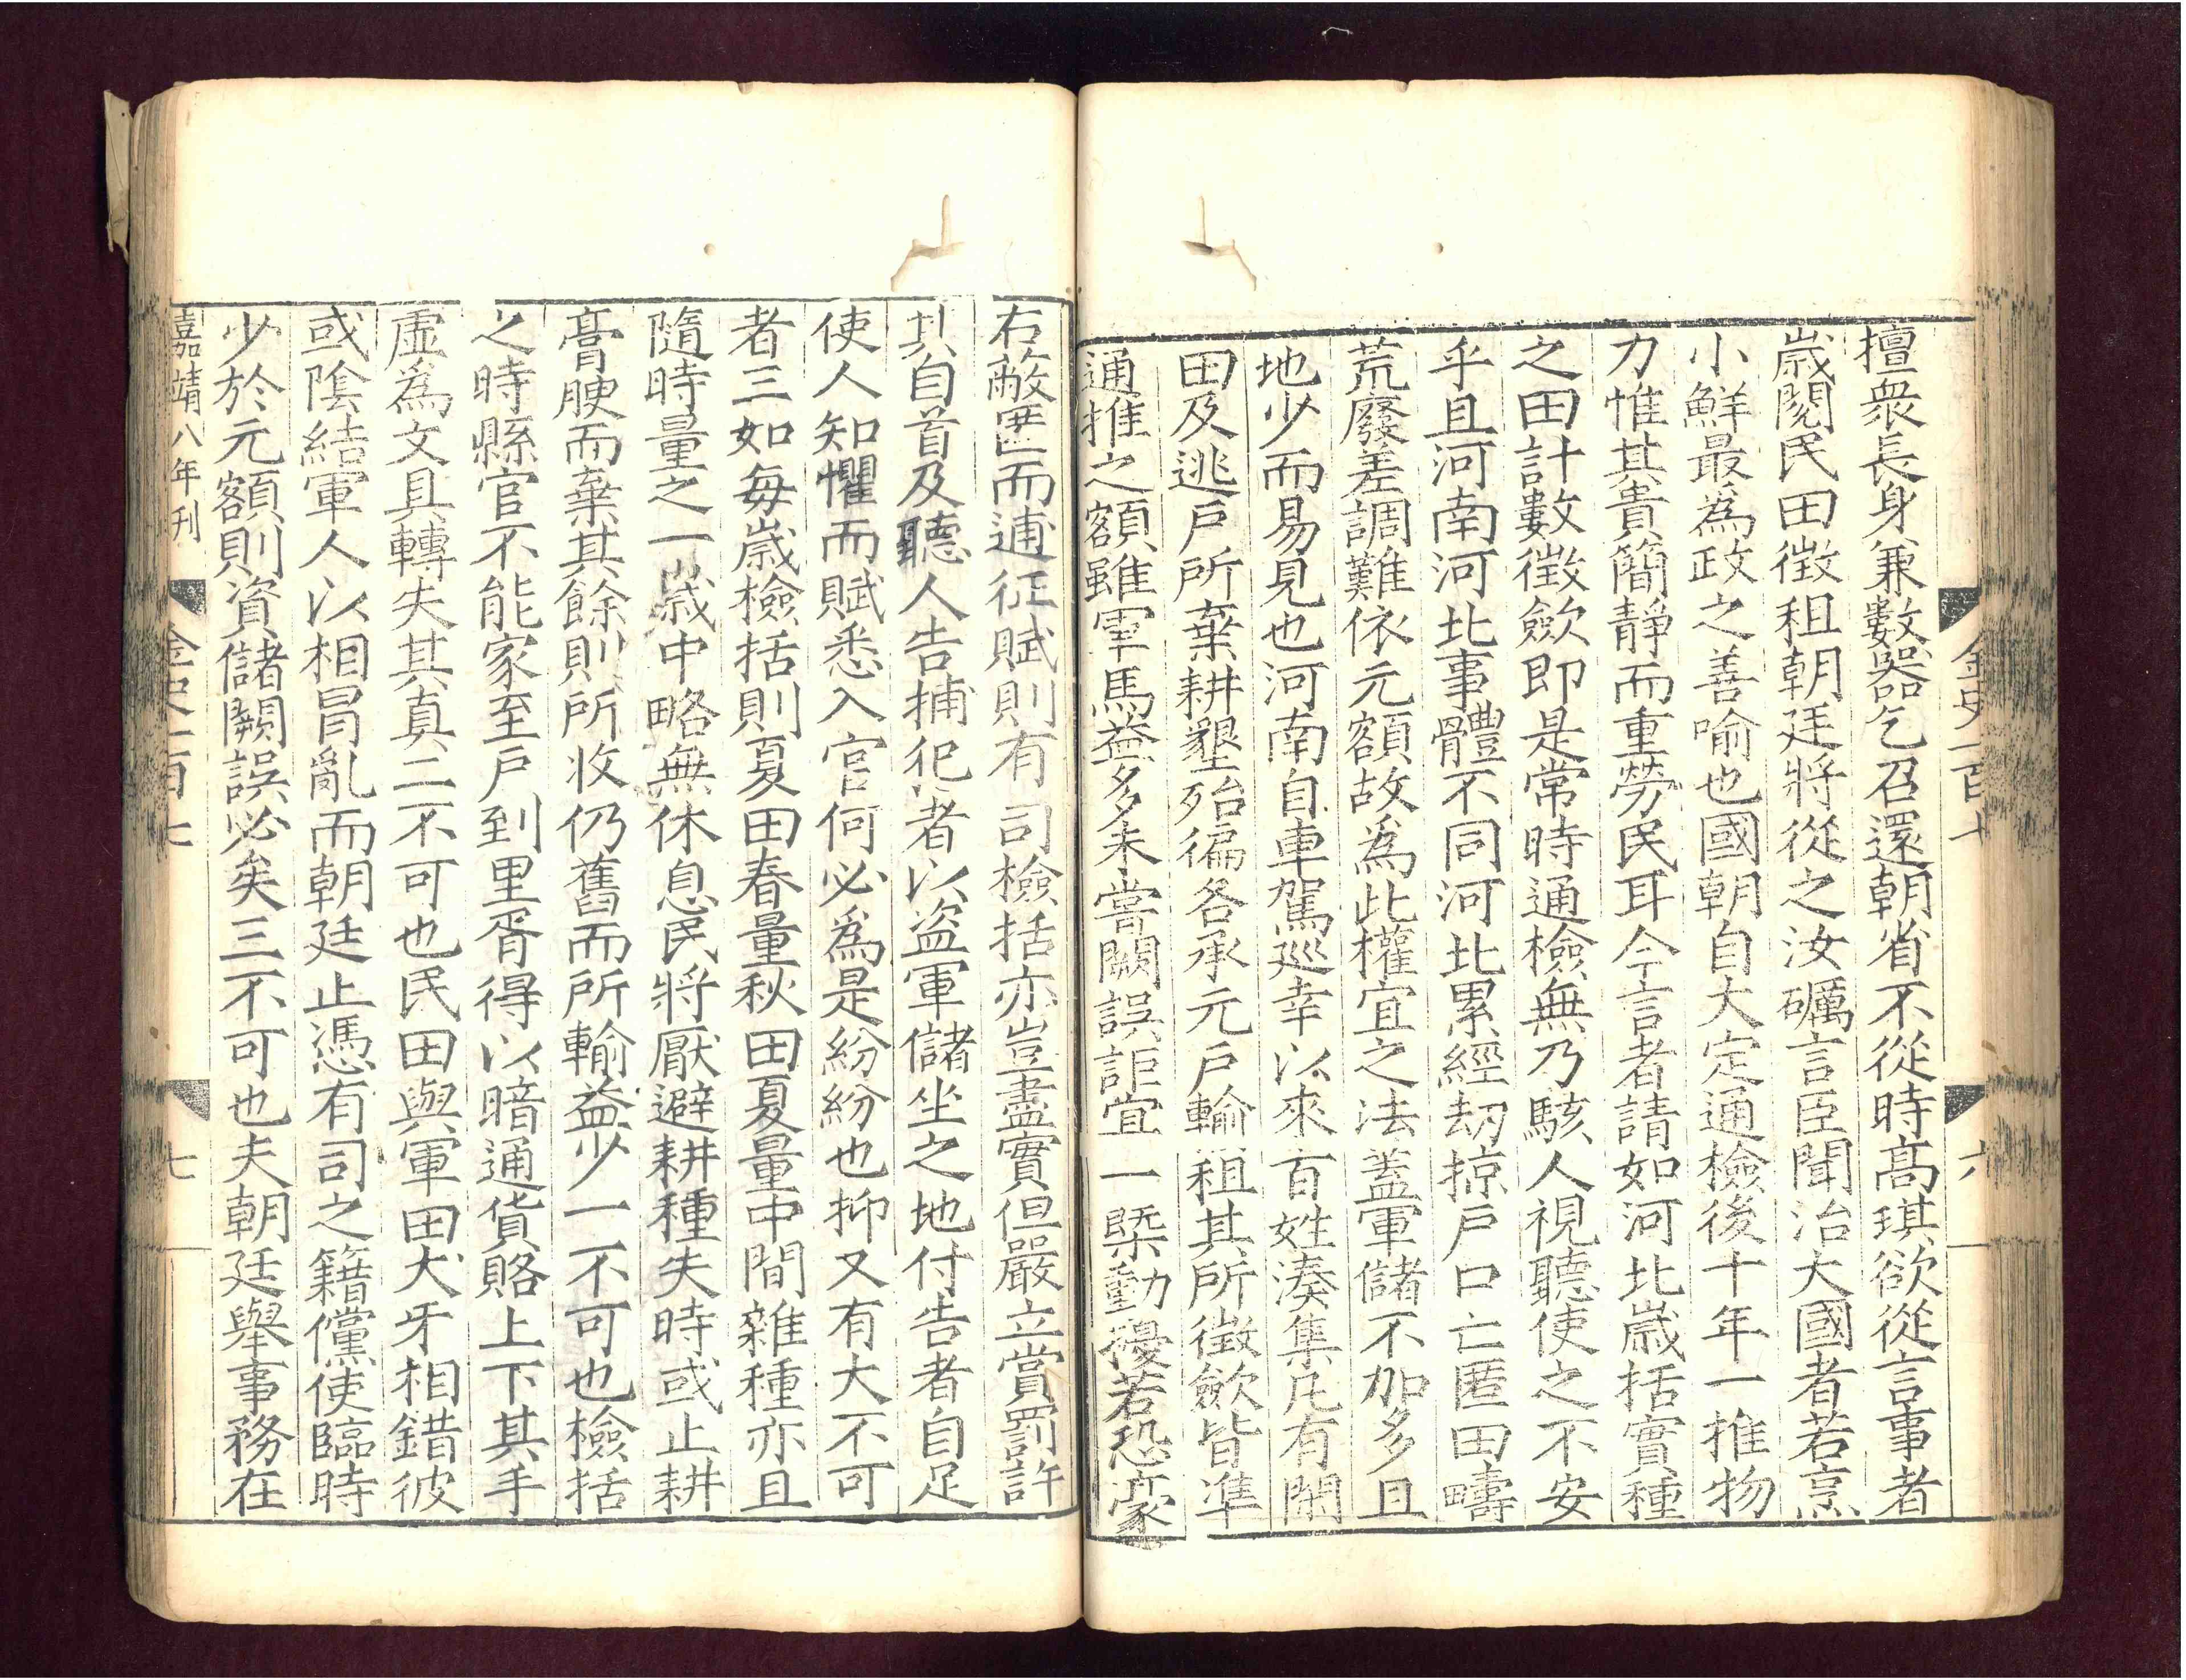 金史一百七
六
擅衆長身兼數器乞召還朝省不從時髙琪欲從言事者
嵗閱民田徴租朝廷將從之汝礪言臣聞治大國者若烹
小鮮最爲政之善喻也國朝自大定通檢後十年一推物
力惟其貴簡靜而重勞民耳今言者請如河北嵗括實種
之田計數徴歛即是常時通檢無乃駭人視聽使之不安
乎且河南河北事體不同河北累經刼掠戶口亡匿田疇
荒廢差調難依元額故爲此權宜之法蓋軍儲不加多且
地少而易見也河南自車駕巡幸以來百姓湊集凡有閑
田及逃戶所棄耕墾殆徧各承元戶輸租其所徴歛皆準
通推之額雖軍馬益多未嘗闕誤詎宜一槩動擾若恐豪
右蔽匿而逋征賦則有司檢括亦豈盡實但嚴立賞罰許
其自首及聽人告捕犯者以盗軍儲坐之地付告者自足
使人知懼而賦悉入官何必爲是紛紛也抑又有大不可
者三如每嵗檢括則夏田春量秋田夏量中間雜種亦且
隨時量之一嵗中略無休息民將厭避耕種失時或止耕
膏腴而棄其餘則所收仍舊而所輸益少一不可也檢括
之時縣官不能家至戶到里胥得以暗通貨賂上下其手
虛爲文具轉失其真二不可也民田與軍田犬牙相錯彼
或陰結軍人以相冒亂而朝廷止憑有司之籍儻使臨時
少於元額則資儲闕誤必矣三不可也夫朝廷舉事務在
嘉靖八年刊
金史一百七
七